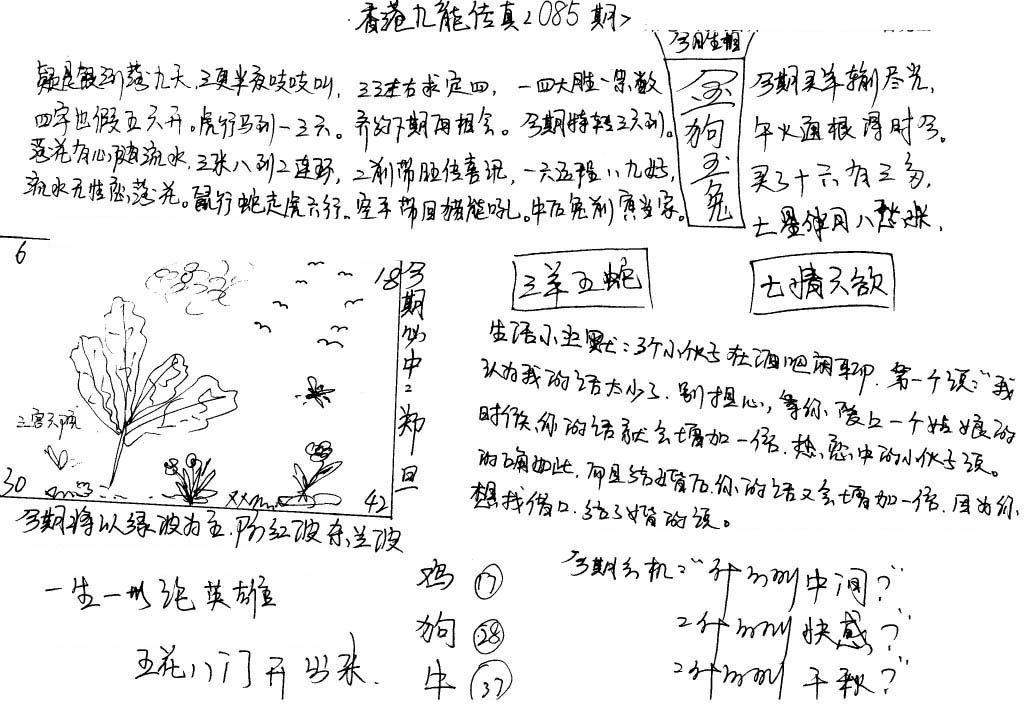 香港九能传真<085期>
今期生肖
疑是银河落九天,三更半夜吱吱叫,三三左右求定四,一四大胜一条数
四字也假五六开。虎行马到一三六。齐约下期再相会。今期特转三六到。
落花有心随流水,三张八到二连环,二前带胆传喜讯,一六五程八九好,
流水无性恋落花。鼠行蛇走虎六行.空手带回猪能吼。牛后兔前寅当家。
金
狗
玉
兔
今期买羊输尽光,
午火通根得时令。
买了十六有三多,
七星伴月八
6
18
三羊五蛇
七情六欲
今期必中:郑旦
生活小幽默:3个小伙子在酒吧闲聊.第一个说:"我
认为我的话太少了.别担心,等你爱上一个姑娘的
时候,你的话就会增加一倍.热恋中的小伙子说。
的确如此,而且结婚后你的话又会增加一倍.因为你,
想找借口.结了婚的说。
30
42
今期将以绿波为主.防红波杀兰波
一生一
绝英雄
五花八门开出来.
鸡 17
狗 28
牛 37
今期玄机:"
中间?"
快感?"
千秋?"